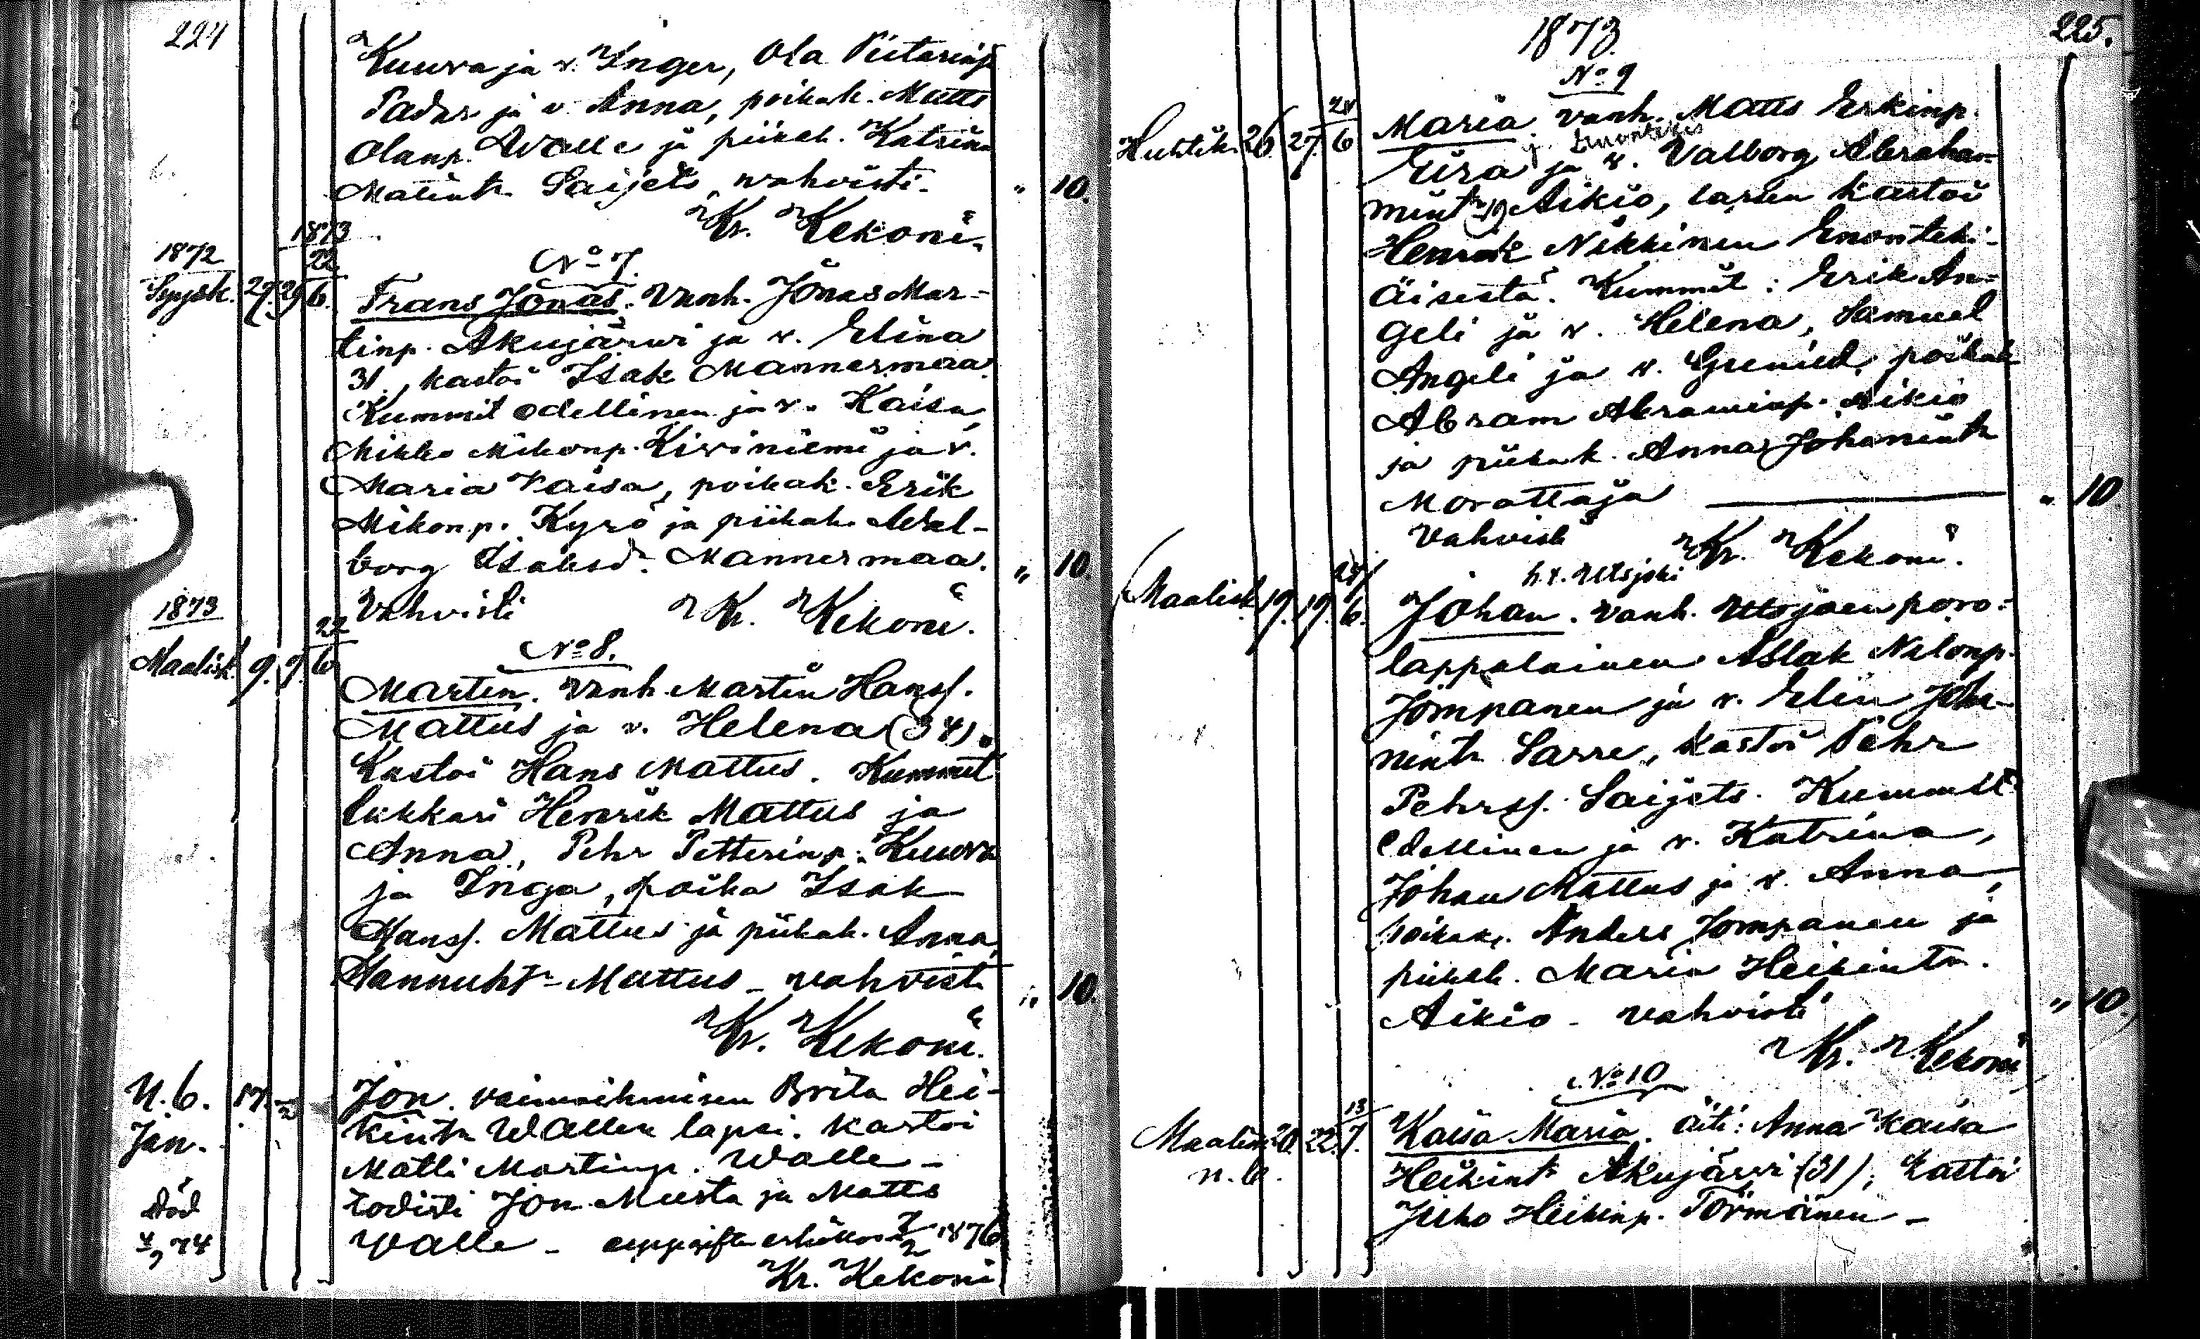 224
Kuuva ja v. Inger, Ola Pietarinp.
Padar ja v. Anna, poikak. Matts
Olanp. Walle ja piikak. Katrina
Matintr. Saijets, wahvisti.
" 10.
Kr. Kekoni.
1872
1873
No 7.
Syysk. 29. 29 22/6.
Frans Jonas. Vanh. Jonas Mar-
tinp. Akujärwi ja v. Elina
31, kastoi Isak Mannermaa.
Kummit edellinen ja v. Kaisa,
Mikko Mikonp. Kiviniemi ja v.
Maria Kaisa, poikak. Erik
Mikonp. Kyrö ja piikak. Wal-
borg Isaksd. Mannermaa.
" 10.
Vahvisti Kr. Kekoni.
1873
No 8.
Maalisk. 9. 9. 22/6
Martin. Vanh. Martin Hanss.
Mattus ja v. Helena (34).
Kastoi Hans Mattus. Kummit
lukkari Henrik Mattus ja
Anna, Pehr Petterinp. Kuuva
ja Inga, poika Isak
Hanss. Mattus ja piikak. Anna
Hannuntr. Mattus - vahvisti
" 10.
Kr. Kekoni.
N.b. 17.
Jan.
Jon. vaimoihmisen Brita Hei-
kintr. Wallen lapsi. Kastoi
Matti Martinp. Walle -
todisti Jon Musta ja Matts
Walle - 1876
Död
74
Kr. Kekoni
1873.
225.
No 9
Huhtik. 26 27. 24/6
Maria. vanh. Matts Erkinp.
Enontekis
Eira ja v. Valborg Abraha-
mintr. Aikio, lapsen kastoi
Henrik Näkkinen Enonteki-
äisestä. Kummit: Erik An-
geli ja v. Helena, Samuel
Angeli ja v. poikak
Abram Abraminp. Aikio
ja piikak. Anna Johanintr.
Morattaja
" 10.
Vahvisti Kr. Kekoni.
h.t. Utsjoki
Maalisk. 19. 19. 24/6.
Johan. vanh. Utsjoen poro-
lappalainen Aslak Nilonp.
Jomppanen ja v. Elin Joha-
nintr. Sarre, kastoi Pehr
Pehrss. Saijets. Kummit
edellinen ja v. Katrina,
Johan Mattus ja v. Anna,
poikak. Anders Jomppanen ja
piikak. Maria Heikintr.
Aikio - vahvisti
" 10.
Kr. Kekoni
No 10
Maalisk. 20. 22. 13/7.
n.b.
Kaisa Maria. Äiti: Anna Kaisa
Heikintr. Akujärvi (31), kastoi
Juho Heikinp. Törmänen -